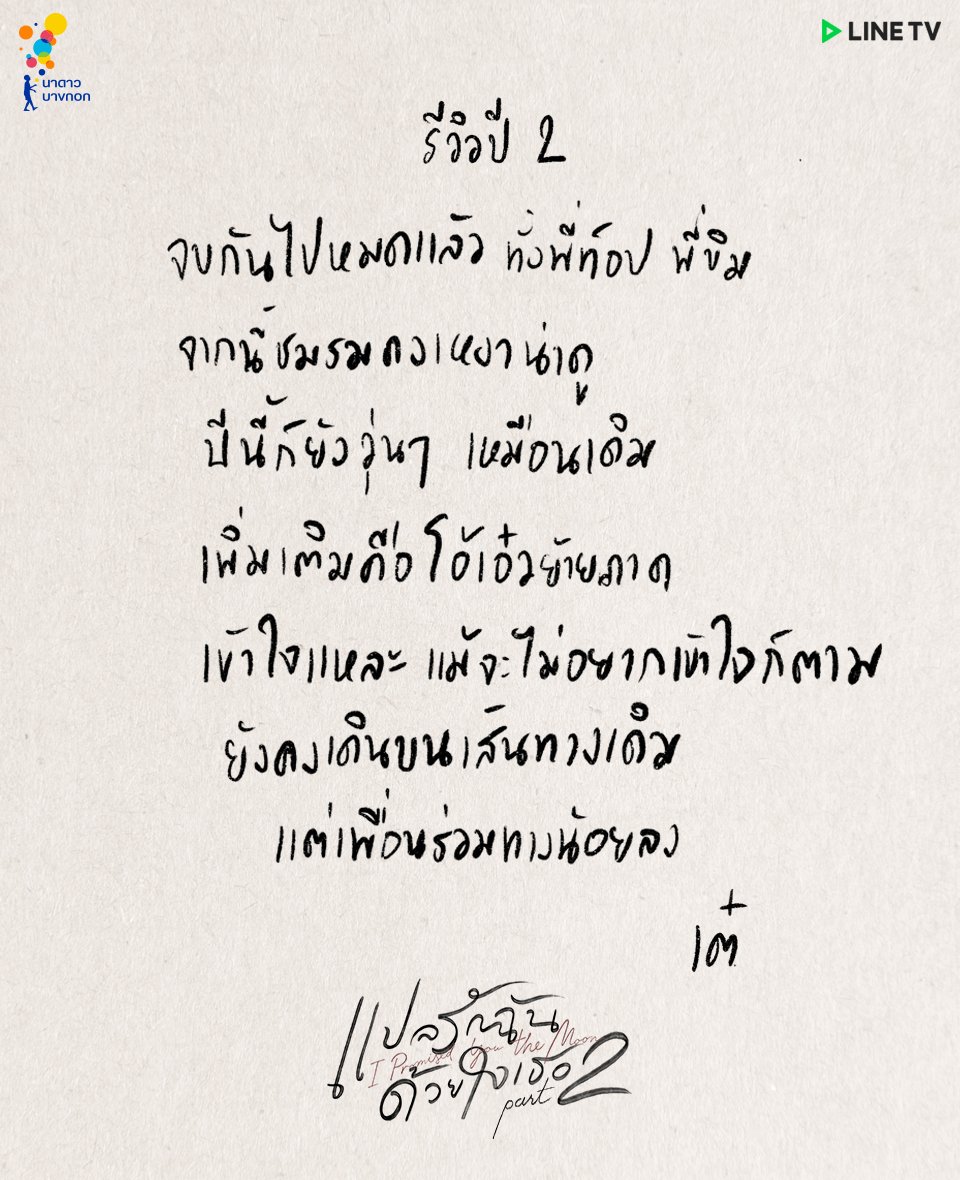 นาดาว
บางกอก
LINE TV
รีวิวปี 2
จบกันไปหมดแล้ว ทั้งพี่ท็อป พี่ขิม
จากนี้ชมรมคงเหงาน่าดู
ปีนี้ก็ยังวุ่นๆ เหมือนเดิม
เพิ่มเติมคือโอ้เอ๋วย้ายภาค
เข้าใจแหละ แม้จะไม่อยากเข้าใจก็ตาม
ยังคงเดินบนเส้นทางเดิม
แต่เพื่อนร่วมทางน้อยลง
เต๋
แปลรักฉัน
I Promised You the Moon
ด้วยใจเธอ 2
part